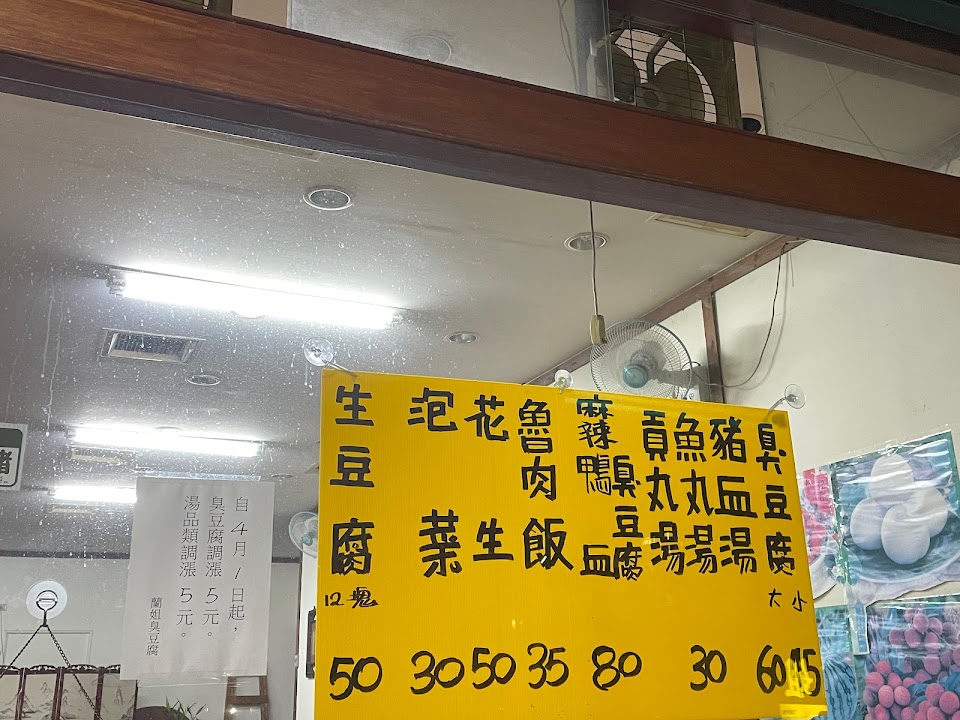 臭豆腐
大 小
60 45
豬血湯
魚丸湯
貢丸湯
30
麻辣鴨血
臭豆腐
80
魯肉飯
35
花生
50
泡菜
30
生豆腐
12塊
50
自4月1日起，
臭豆腐調漲5元。
湯品類調漲5元。
蘭姐臭豆腐